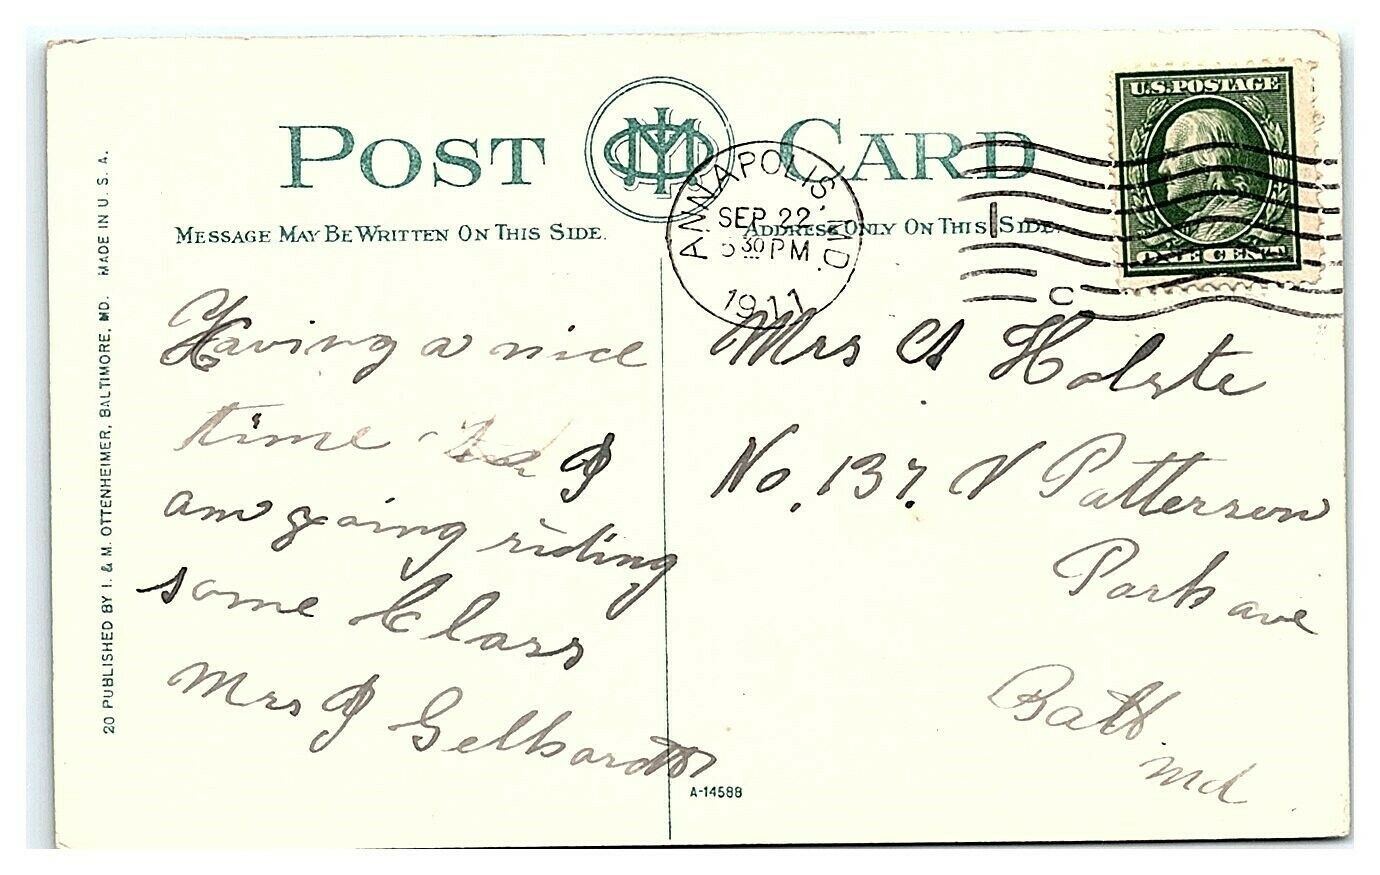 POST CARD
MESSAGE MAY BE WRITTEN ON THIS SIDE.
ADDRESS ONLY ON THIS SIDE.
U.S. POSTAGE
ONE CENT
ANNAPOLIS, MD.
SEP 22
30 PM
1911
C
Having a nice
time I
am going riding
some Class
Mrs J Gelhardt
Mrs A Holste
No. 137. N Patterson
Park ave
Balto
Md
20 PUBLISHED BY I. & M. OTTENHEIMER, BALTIMORE, MD. MADE IN U. S. A.
A-14588